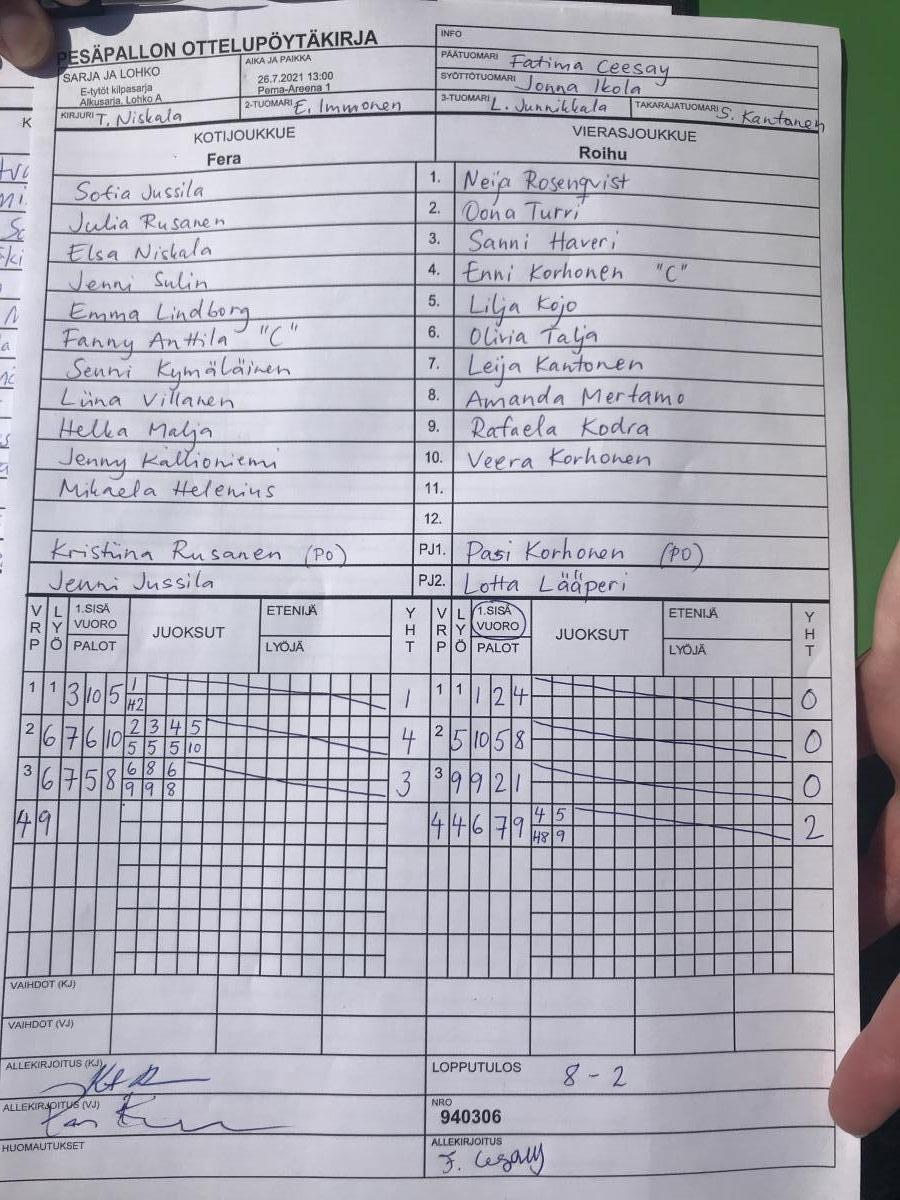 PESÄPALLON OTTELUPÖYTÄKIRJA
INFO
SARJA JA LOHKO
E-tytöt kilpasarja
Alkusarja, Lohko A
AIKA JA PAIKKA
26.7.2021 13:00
Pema-Areena 1
PÄÄTUOMARI Fatima Ceesay
SYÖTTÖTUOMARI Jonna Ikola
KIRJURI T. Niskala
2-TUOMARI E. Immonen
3-TUOMARI L. Junnikkala
TAKARAJATUOMARI S. Kantonen
KOTIJOUKKUE VIERASJOUKKUE
Fera Roihu
Sofia Jussila 1. Neija Rosenqvist
Julia Rusanen 2. Oona Turri
Elsa Niskala 3. Sanni Haveri
Jenni Sulin 4. Enni Korhonen "C"
Emma Lindborg 5. Lilja Kojo
Fanny Anttila "C" 6. Olivia Talja
Senni Kymäläinen 7. Leija Kantonen
Liina Villanen 8. Amanda Mertamo
Helka Malja 9. Rafaela Kodra
Jenny Kallioniemi 10. Veera Korhonen
Mikaela Helenius 11.
12.
Kristiina Rusanen (PO) PJ1. Pasi Korhonen (PO)
Jenni Jussila PJ2. Lotta Lääperi
VRP LYÖ 1.SISÄ VUORO PALOT JUOKSUT ETENIJÄ LYÖJÄ YHT VRP LYÖ 1.SISÄ VUORO PALOT JUOKSUT ETENIJÄ LYÖJÄ YHT
1 1 3 10 5 1 1 1 1 1 2 4 0
H2
2 6 7 6 10 2 3 4 5 4 2 5 10 5 8 0
5 5 5 10
3 6 7 5 8 6 8 6 3 3 9 9 2 1 0
9 9 8
4 9 4 4 6 7 9 4 5 2
H8 9
VAIHDOT (KJ)
VAIHDOT (VJ)
ALLEKIRJOITUS (KJ)
LOPPUTULOS 8 - 2
ALLEKIRJOITUS (VJ)
NRO
940306
HUOMAUTUKSET
ALLEKIRJOITUS
F. Ceesay